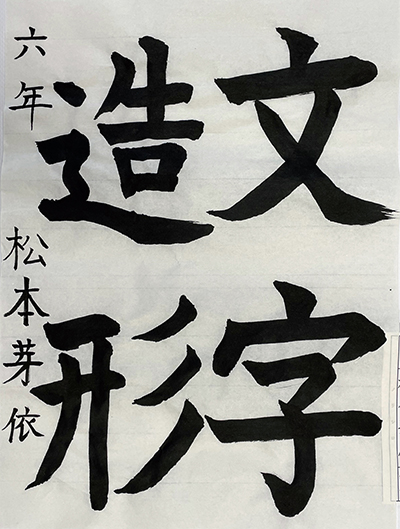 文字
造形
六年 松本芽依